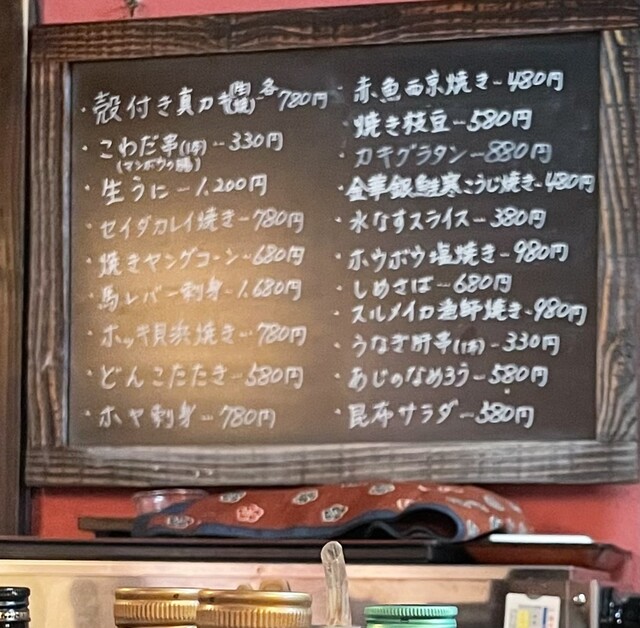 ・殻付き真ガキ 各780円
・こわだ串(1本)-330円
(マンボウの腸)
・生うに-1,200円
・セイダカレイ焼き-780円
・焼きヤングコーン-680円
・馬レバー刺身-1,680円
・ホッキ貝浜焼き-780円
・どんこたたき-580円
・ホヤ刺身-780円
・赤魚西京焼き-480円
・焼き枝豆-580円
・カキグラタン-880円
・金華銀鮭寒こうじ焼き-480円
・水なすスライス-380円
・ホウボウ塩焼き-980円
・しめさば-680円
・スルメイカ漁師焼き-980円
・うなぎ肝串(1本)-330円
・あじのなめろう-580円
・昆布サラダ-580円